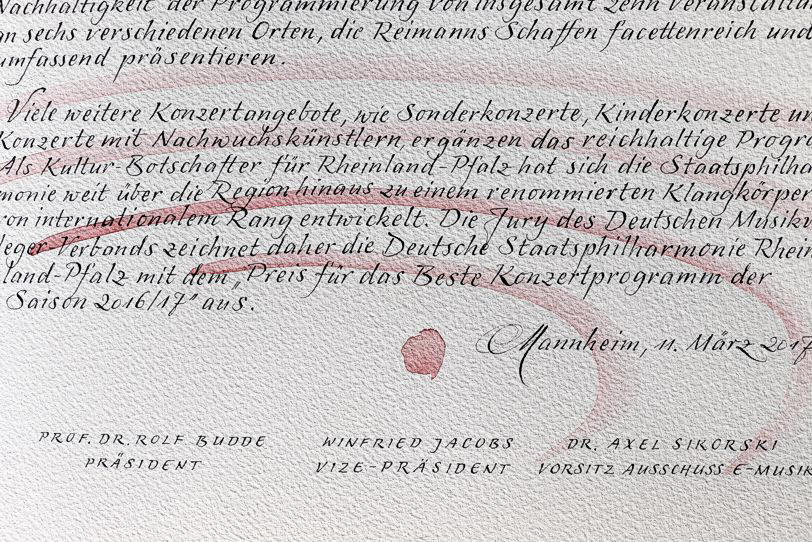 Nachhaltigkeit der Programmierung von insgesamt zehn Veranstaltu
an sechs verschiedenen Orten, die Reimanns Schaffen facettenreich und
umfassend präsentieren.
Viele weitere Konzertangebote, wie Sonderkonzerte, Kinderkonzerte un
Konzerte mit Nachwuchskünstlern, ergänzen das reichhaltige Progra
Als Kultur-Botschafter für Rheinland-Pfalz hat sich die Staatsphilha
monie weit über die Region hinaus zu einem renommierten Klangkörper
von internationalem Rang entwickelt. Die Jury des Deutschen Musikv
leger Verbands zeichnet daher die Deutsche Staatsphilharmonie Rhein
land-Pfalz mit dem „Preis für das Beste Konzertprogramm der
Saison 2016/17" aus.
Mannheim, 11. März 2017
PROF. DR. ROLF BUDDE WINFRIED JACOBS DR. AXEL SIKORSKI
PRÄSIDENT VIZE-PRÄSIDENT VORSITZ AUSSCHUSS E-MUSIK